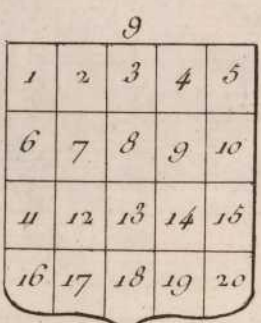 9
1 2 3 4 5
6 7 8 9 10
11 12 13 14 15
16 17 18 19 20